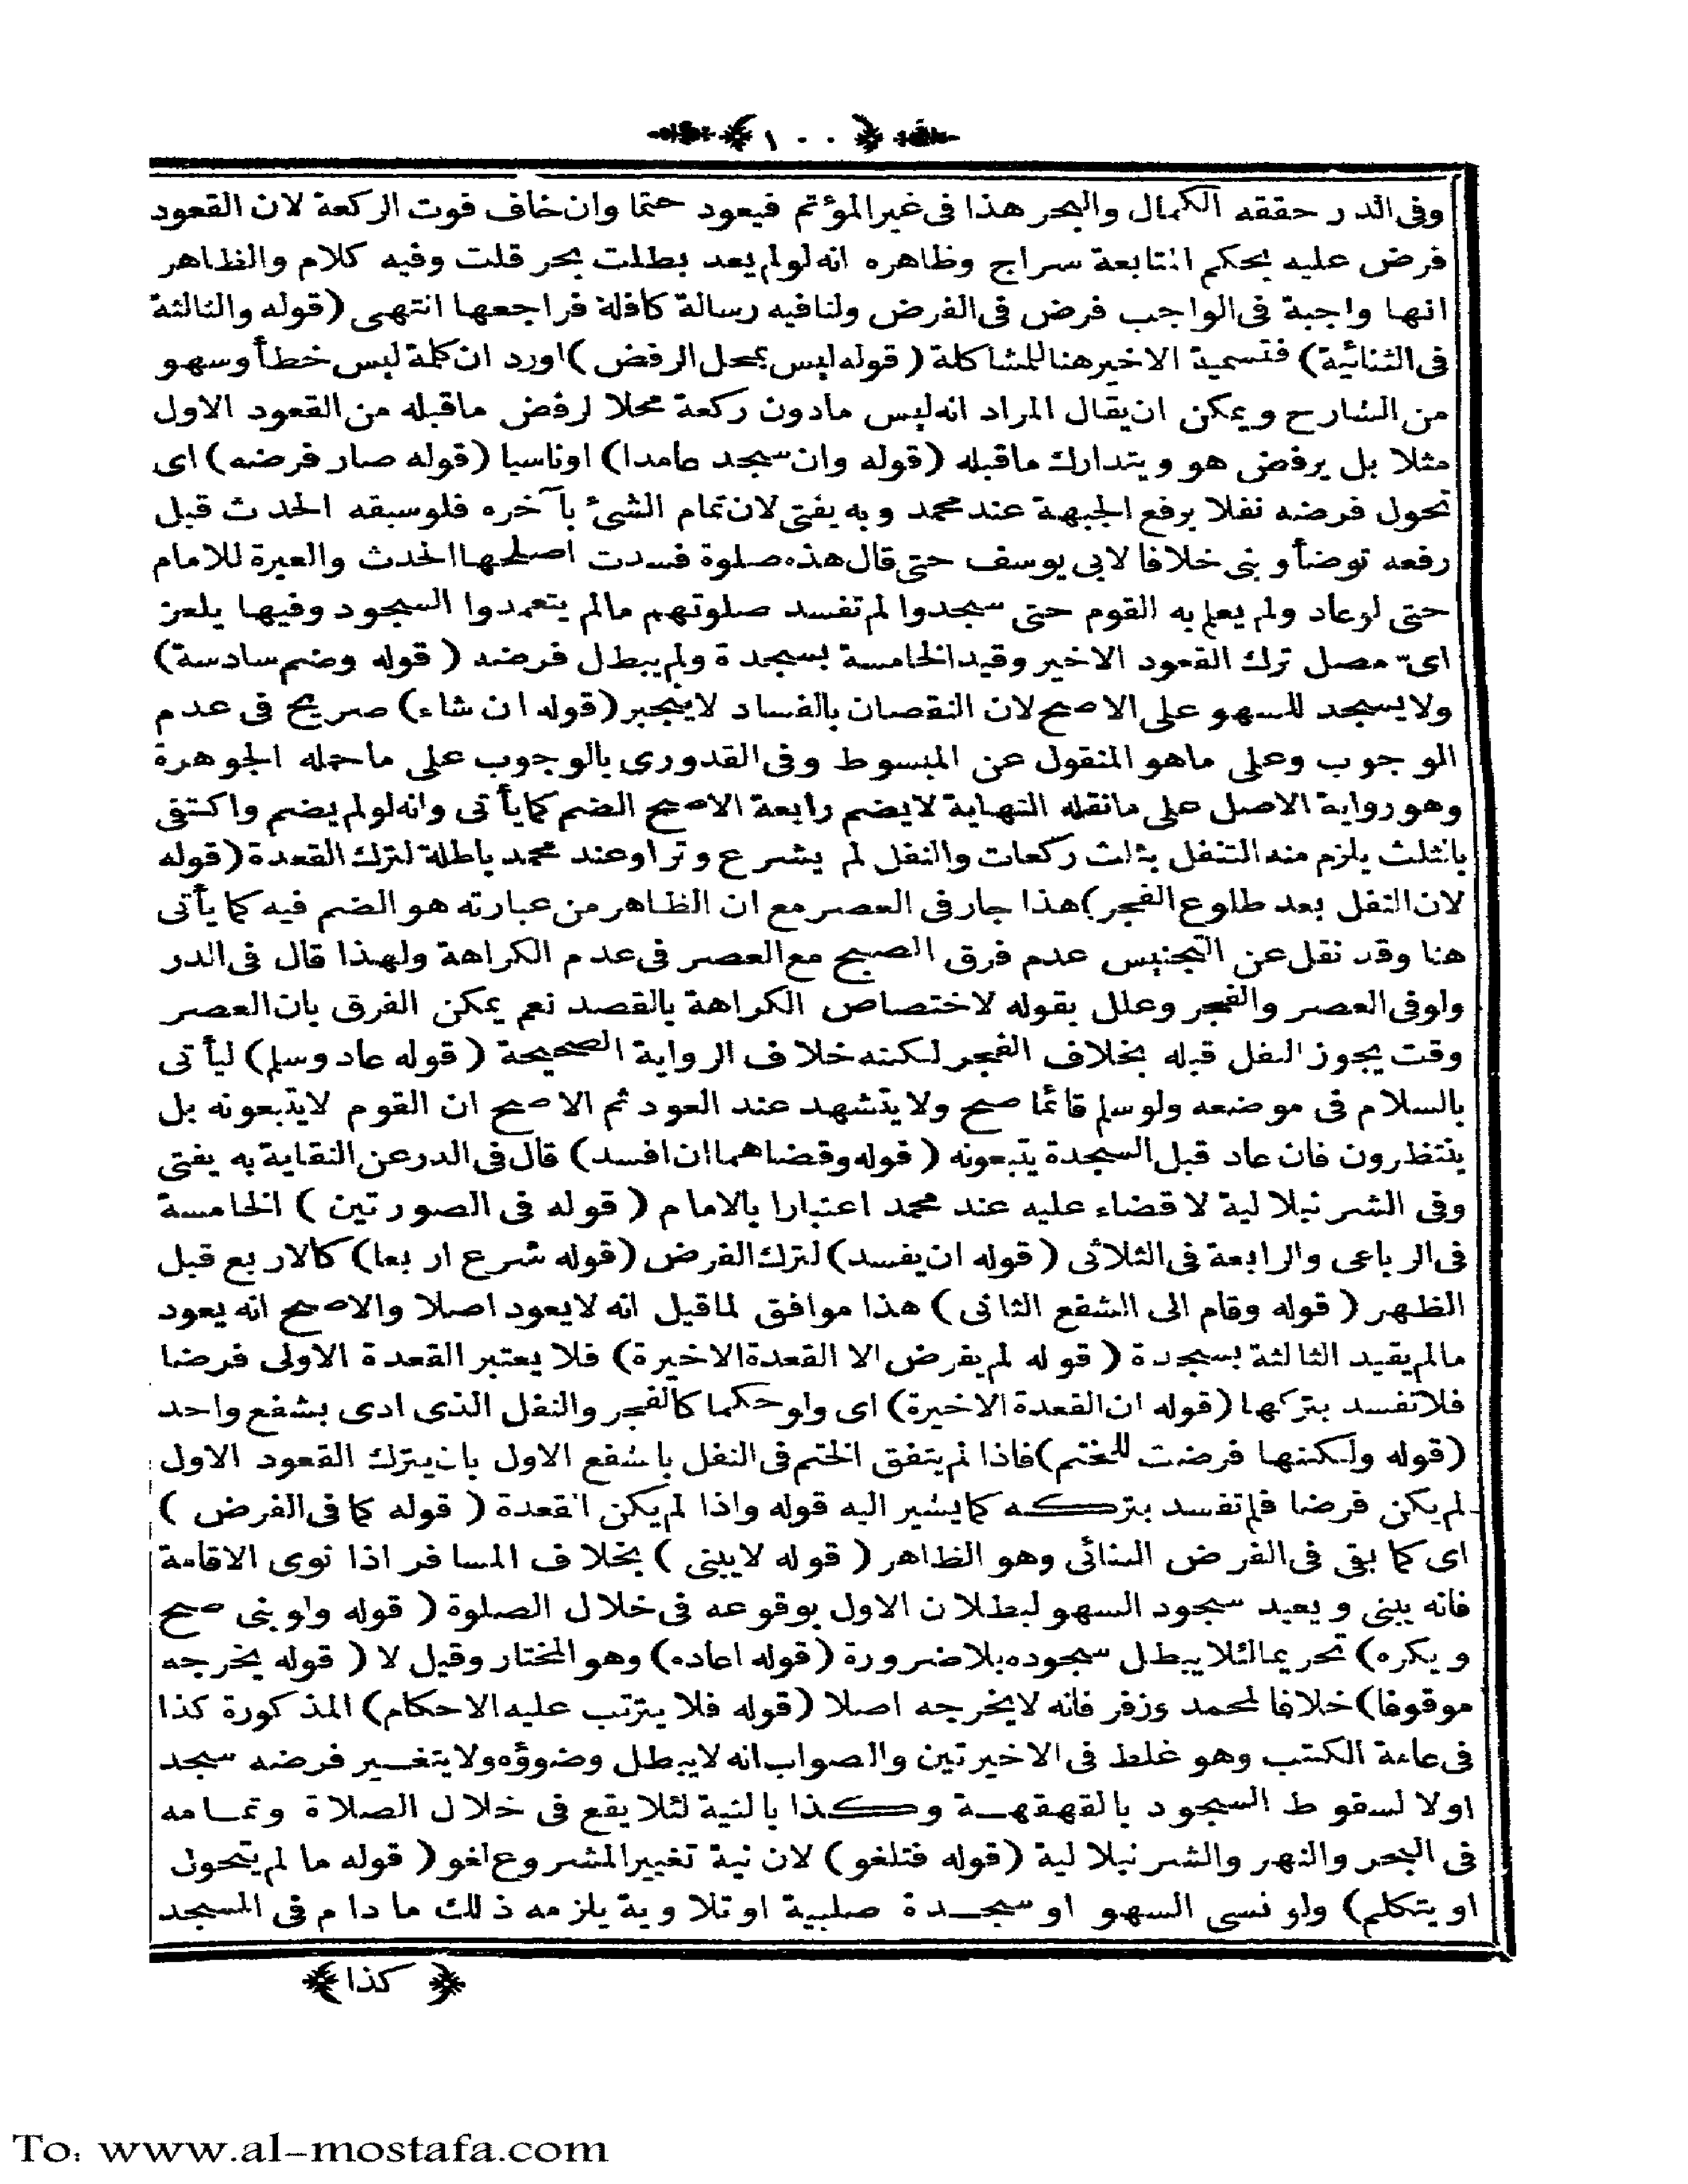 ﴿ ١٠٠ ﴾
وفى الدر حققه الكمال والبحر هذا فى غير المؤتم فيعود حتما وان خاف فوت الركعة لان القعود
فرض عليه بحكم المتابعة سراج وظاهره انه لو لم يعد بطلت بحر قلت وفيه كلام والظاهر
انها واجبة فى الواجب فرض فى الفرض ولنا فيه رسالة كافلة فراجعها انتهى (قوله والثالثة
فى الثنائية) فتسمية الاخير هنا للمشاكلة (قوله ليس بمحل الرفض) اورد ان كلمة ليس خطأ وسهو
من الشارح ويمكن ان يقال المراد انه ليس مادون ركعة محلا لرفض ماقبله من القعود الاول
مثلا بل يرفض هو ويتدارك ماقبله (قوله وان سجد عامدا) اوناسيا (قوله صار فرضه) اى
تحول فرضه نفلا برفع الجبهة عند محمد وبه يفتى لان تمام الشئ بآخره فلو سبقه الحدث قبل
رفعه توضأ وبنى خلافا لابى يوسف حتى قال هذه صلوة فسدت اصلحها الحدث والعبرة للامام
حتى لو عاد ولم يعلم به القوم حتى سجدوا لم تفسد صلوتهم مالم يتعمدوا السجود وفيها يلعز
اىّ مصل ترك القعود الاخير وقيد الخامسة بسجدة ولم يبطل فرضه (قوله وضم سادسة)
ولا يسجد للسهو على الاصح لان النقصان بالفساد لا ينجبر (قوله ان شاء) صريح فى عدم
الوجوب وعلى ماهو المنقول عن المبسوط وفى القدورى بالوجوب على ما حمله الجوهرة
وهو رواية الاصل على مانقله النهاية لا يضم رابعة الاصح الضم كما يأتى وانه لو لم يضم واكتفى
بالثلث يلزم منه التنفل بثلث ركعات والنفل لم يشرع وترا وعند محمد باطلة لترك القعدة (قوله
لان النفل بعد طلوع الفجر) هذا جار فى العصر مع ان الظاهر من عبارته هو الضم فيه كما يأتى
هنا وقد نقل عن التجنيس عدم فرق الصبح مع العصر فى عدم الكراهة ولهذا قال فى الدر
ولو فى العصر والفجر وعلل بقوله لاختصاص الكراهة بالقصد نعم يمكن الفرق بان العصر
وقت يجوز النفل قبله بخلاف الفجر لكنه خلاف الرواية الصحيحة (قوله عاد وسلم) ليأتى
بالسلام فى موضعه ولو سلم قائما صح ولا يتشهد عند العود ثم الاصح ان القوم لا يتبعونه بل
ينتظرون فان عاد قبل السجدة يتبعونه (قوله وقضاهما ان افسد) قال فى الدر عن النقاية به يفتى
وفى الشرنبلالية لا قضاء عليه عند محمد اعتبارا بالامام (قوله فى الصورتين) الخامسة
فى الرباعى والرابعة فى الثلاثى (قوله ان يفسد) لترك الفرض (قوله شرع اربعا) كالاربع قبل
الظهر (قوله وقام الى الشفع الثانى) هذا موافق لماقيل انه لا يعود اصلا والاصح انه يعود
مالم يقيد الثالثة بسجدة (قوله لم يفرض الا القعدة الاخيرة) فلا يعتبر القعدة الاولى فرضا
فلا تفسد بتركها (قوله ان القعدة الاخيرة) اى ولو حكما كالفجر والنفل الذى ادى بشفع واحد
(قوله ولكنها فرضت للختم) فاذا لم يتفق الختم فى النفل با شفع الاول بان يترك القعود الاول
لم يكن فرضا فلم تفسد بتركه كما يشير اليه قوله واذا لم يكن القعدة (قوله كما فى الفرض)
اى كما بقى فى الفرض الثنائى وهو الظاهر (قوله لايبنى) بخلاف المسافر اذا نوى الاقامة
فانه يبنى ويعيد سجود السهو لبطلان الاول بوقوعه فى خلال الصلوة (قوله ولو بنى صح
ويكره) تحريما لئلا يبطل سجوده بلا ضرورة (قوله اعاده) وهو المختار وقيل لا (قوله يخرجه
موقوفا) خلافا لمحمد وزفر فانه لا يخرجه اصلا (قوله فلا يترتب عليه الاحكام) المذكورة كذا
فى عامة الكتب وهو غلط فى الاخيرتين والصواب انه لا يبطل وضوؤه ولا يتغير فرضه سجد
اولا لسقوط السجود بالقهقهة وكذا بالنية لئلا يقع فى خلال الصلاة وتمامه
فى البحر والنهر والشرنبلالية (قوله فتلغو) لان نية تغيير المشروع لغو (قوله ما لم يتحول
او يتكلم) ولو نسى السهو او سجدة صلبية او تلاوية يلزمه ذلك مادام فى المسجد
﴿ كذا ﴾
To: www.al-mostafa.com